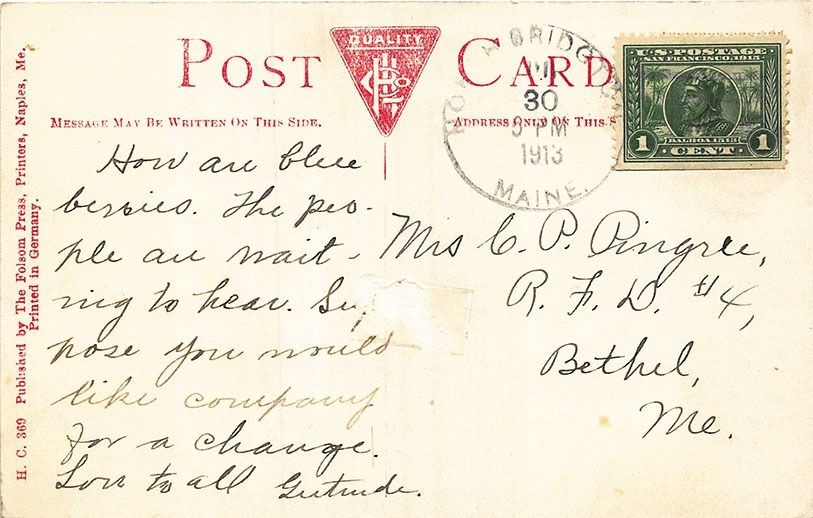 QUALITY
POST CARD
MESSAGE MAY BE WRITTEN ON THIS SIDE.
ADDRESS ONLY ON THIS S
BRIDGTON
30
PM
1913
MAINE.
U.S. POSTAGE
SAN FRANCISCO, 1915
BALBOA 1513
1 CENT 1
How are blue
berries. The peo-
ple are wait-
ing to hear. Su
pose you would
like company
for a change.
Love to all Gertrude.
Mrs C. P. Pingree,
R. F. D. #4,
Bethel,
Me.
H. C. 369 Published by The Folsom Press, Printers, Naples, Me.
Printed in Germany.